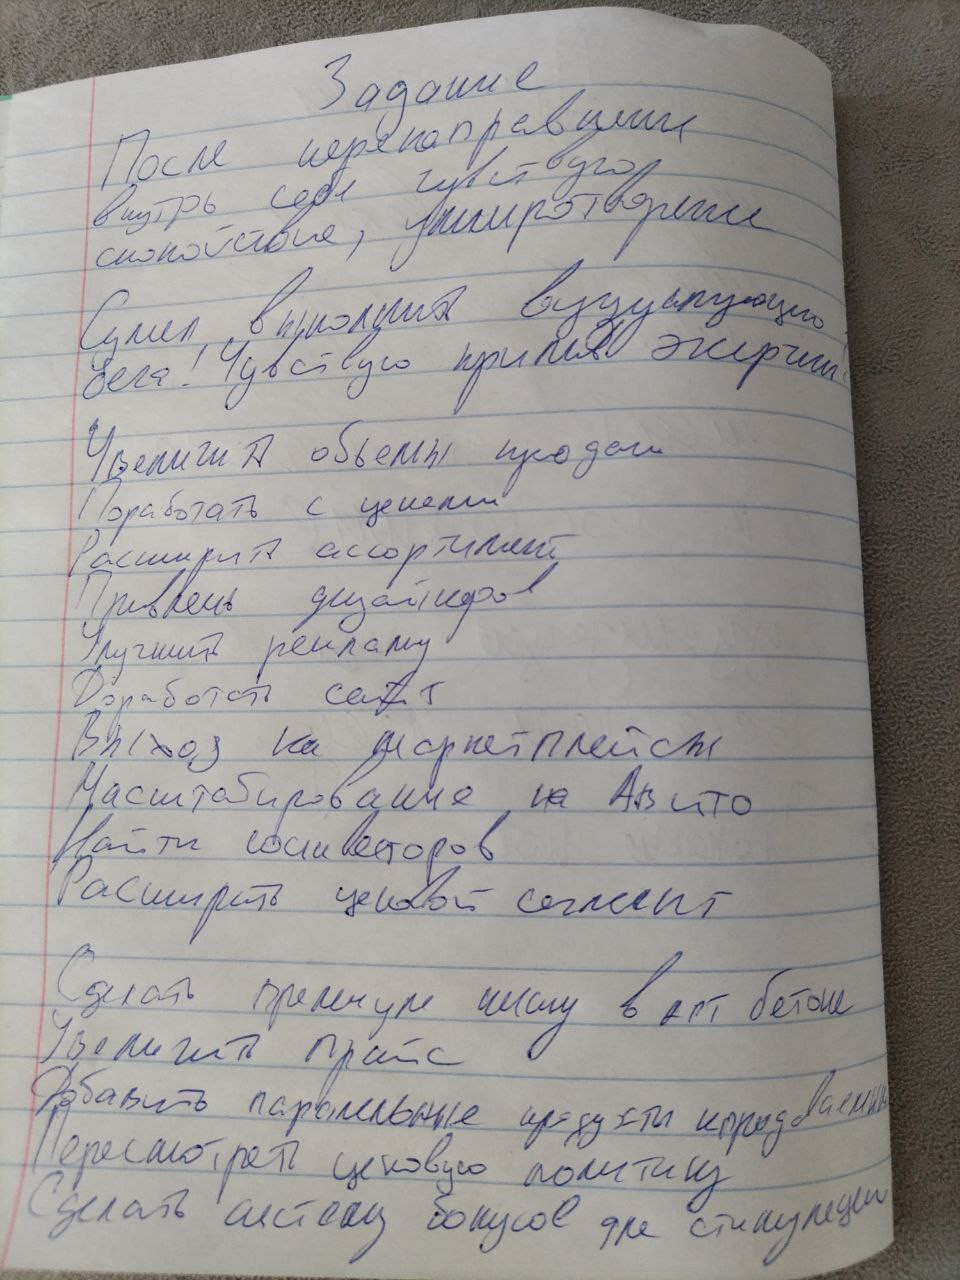 Задание
После перенаправления
внутрь себя чувствую
спокойствие, умиротворение
Сумел выполнить визуализацию
бега! Чувствую прилив энергии!
Увеличить объемы продаж
Поработать с ценами
Расширить ассортимент
Привлечь дизайнеров
Улучшить рекламу
Доработать сайт
Выход на маркетплейсы
Масштабирование на Авито
Найти соинвесторов
Расширить ценовой сегмент
Сделать премиум нишу в арт бетоне
Увеличить прайс
Добавить паралельные продукты к продаваемым
Пересмотреть ценовую политику
Сделать систему бонусов для стимуляции